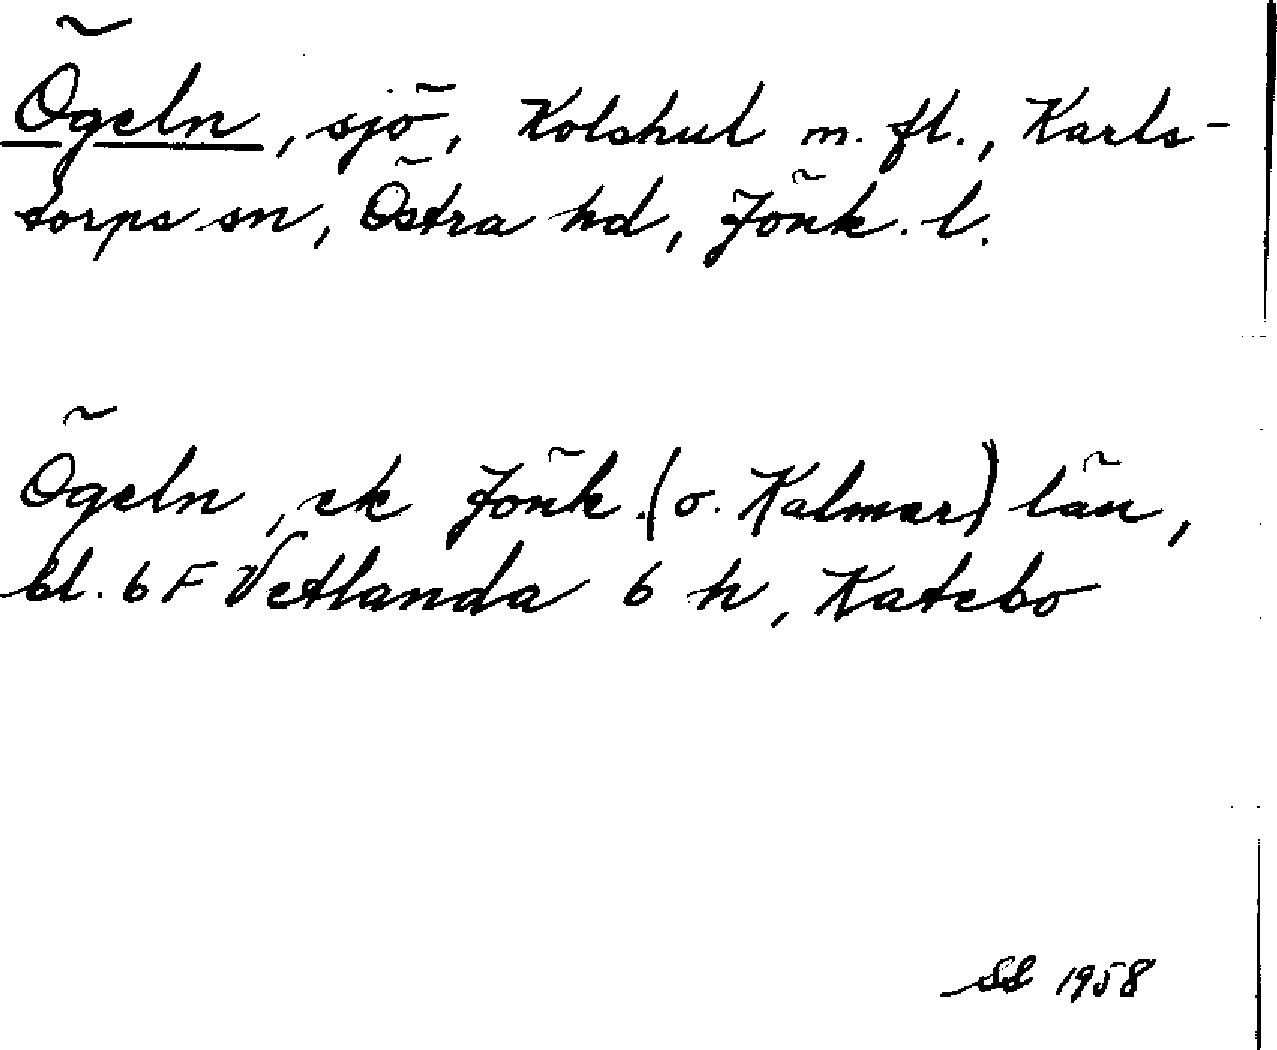 Ögeln, sjö, Kolshul m. fl., Karls-
torps sn, Östra hd, Jönk. l.
Ögeln, ek Jönk. (o. Kalmar) län,
bl. 6 F Vetlanda 6 h, Katebo
SL 1958